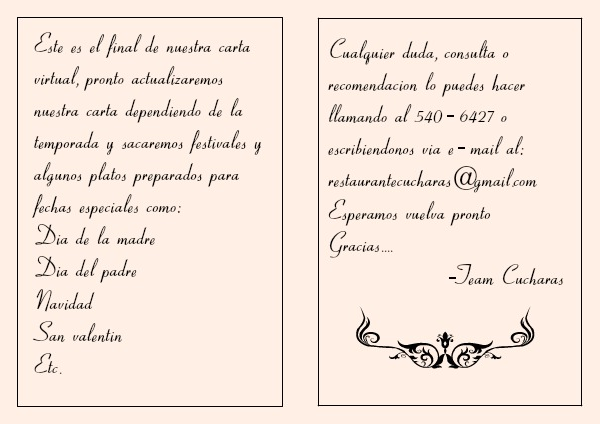 Este es el final de nuestra carta
virtual, pronto actualizaremos
nuestra carta dependiendo de la
temporada y sacaremos festivales y
algunos platos preparados para
fechas especiales como:
Dia de la madre
Dia del padre
Navidad
San valentin
Etc.
Cualquier duda, consulta o
recomendacion lo puedes hacer
llamando al 540-6427 o
escribiendonos via e-mail al:
restaurantecucharas@gmail.com
Esperamos vuelva pronto
Gracias....
-Team Cucharas